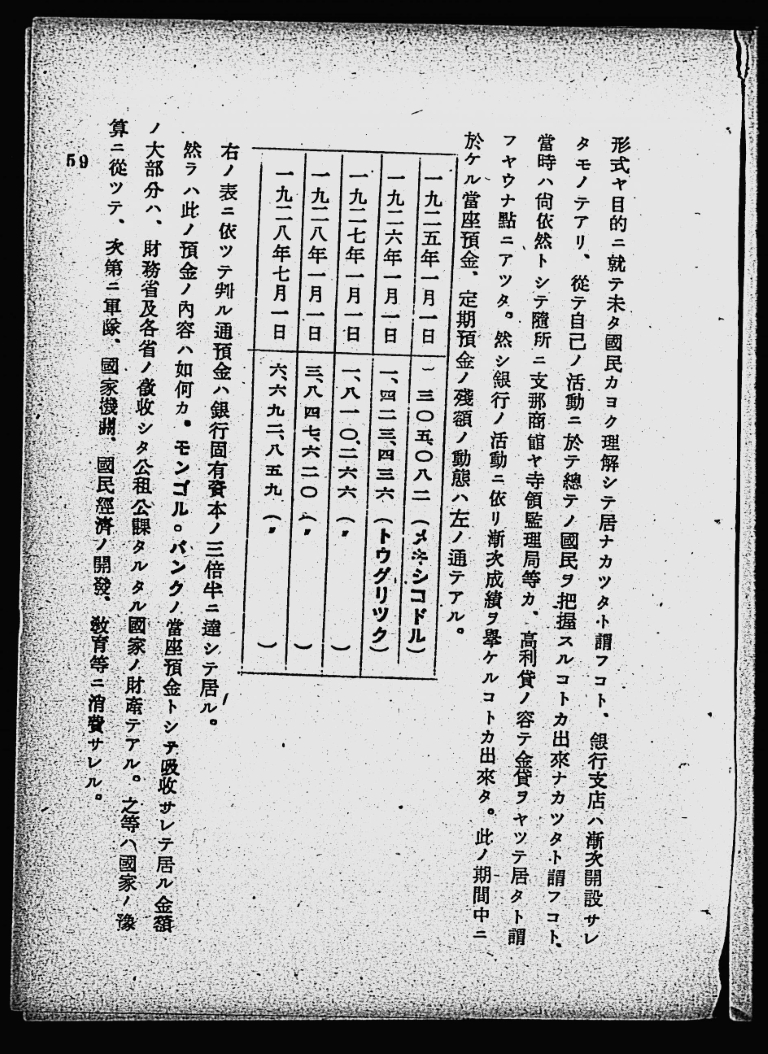 形式ヤ目的ニ就テ未タ國民カヨク理解シテ居ナカツタト謂フコト、銀行支店ハ漸次開設サレ
タモノテアリ、從テ自己ノ活動ニ於テ總テノ國民ヲ把握スルコトカ出來ナカツタト謂フコト、
當時ハ尙依然トシテ隨所ニ支那商館ヤ寺領監理局等カ、高利貸ノ容テ金貸ヲヤツテ居タト謂
フヤウナ點ニアツタ。然シ銀行ノ活動ニ依リ漸次成績ヲ擧ケルコトカ出來タ。此ノ期間中ニ
於ケル當座預金、定期預金ノ殘額ノ動態ハ左ノ通テアル。
一九二五年一月一日 三〇五、〇八二（メキシコドル）
一九二六年一月一日 一、四二三、四三六（トウグリツク）
一九二七年一月一日 一、八一〇、二六六（〃）
一九二八年一月一日 三、八四七、六二〇（〃）
一九二八年七月一日 六、六九二、八五九（〃）
右ノ表ニ依ツテ判ル通預金ハ銀行固有資本ノ三倍半ニ達シテ居ル。
然ラハ此ノ預金ノ內容ハ如何カ。モンゴル。バンクノ當座預金トシテ吸收サレテ居ル金額
ノ大部分ハ、財務省及各省ノ徵收シタ公租公課タルタル國家ノ財產テアル。之等ハ國家ノ豫
算ニ從ツテ、次第ニ軍隊、國家機關、國民經濟ノ開發、敎育等ニ消費サレル。
59